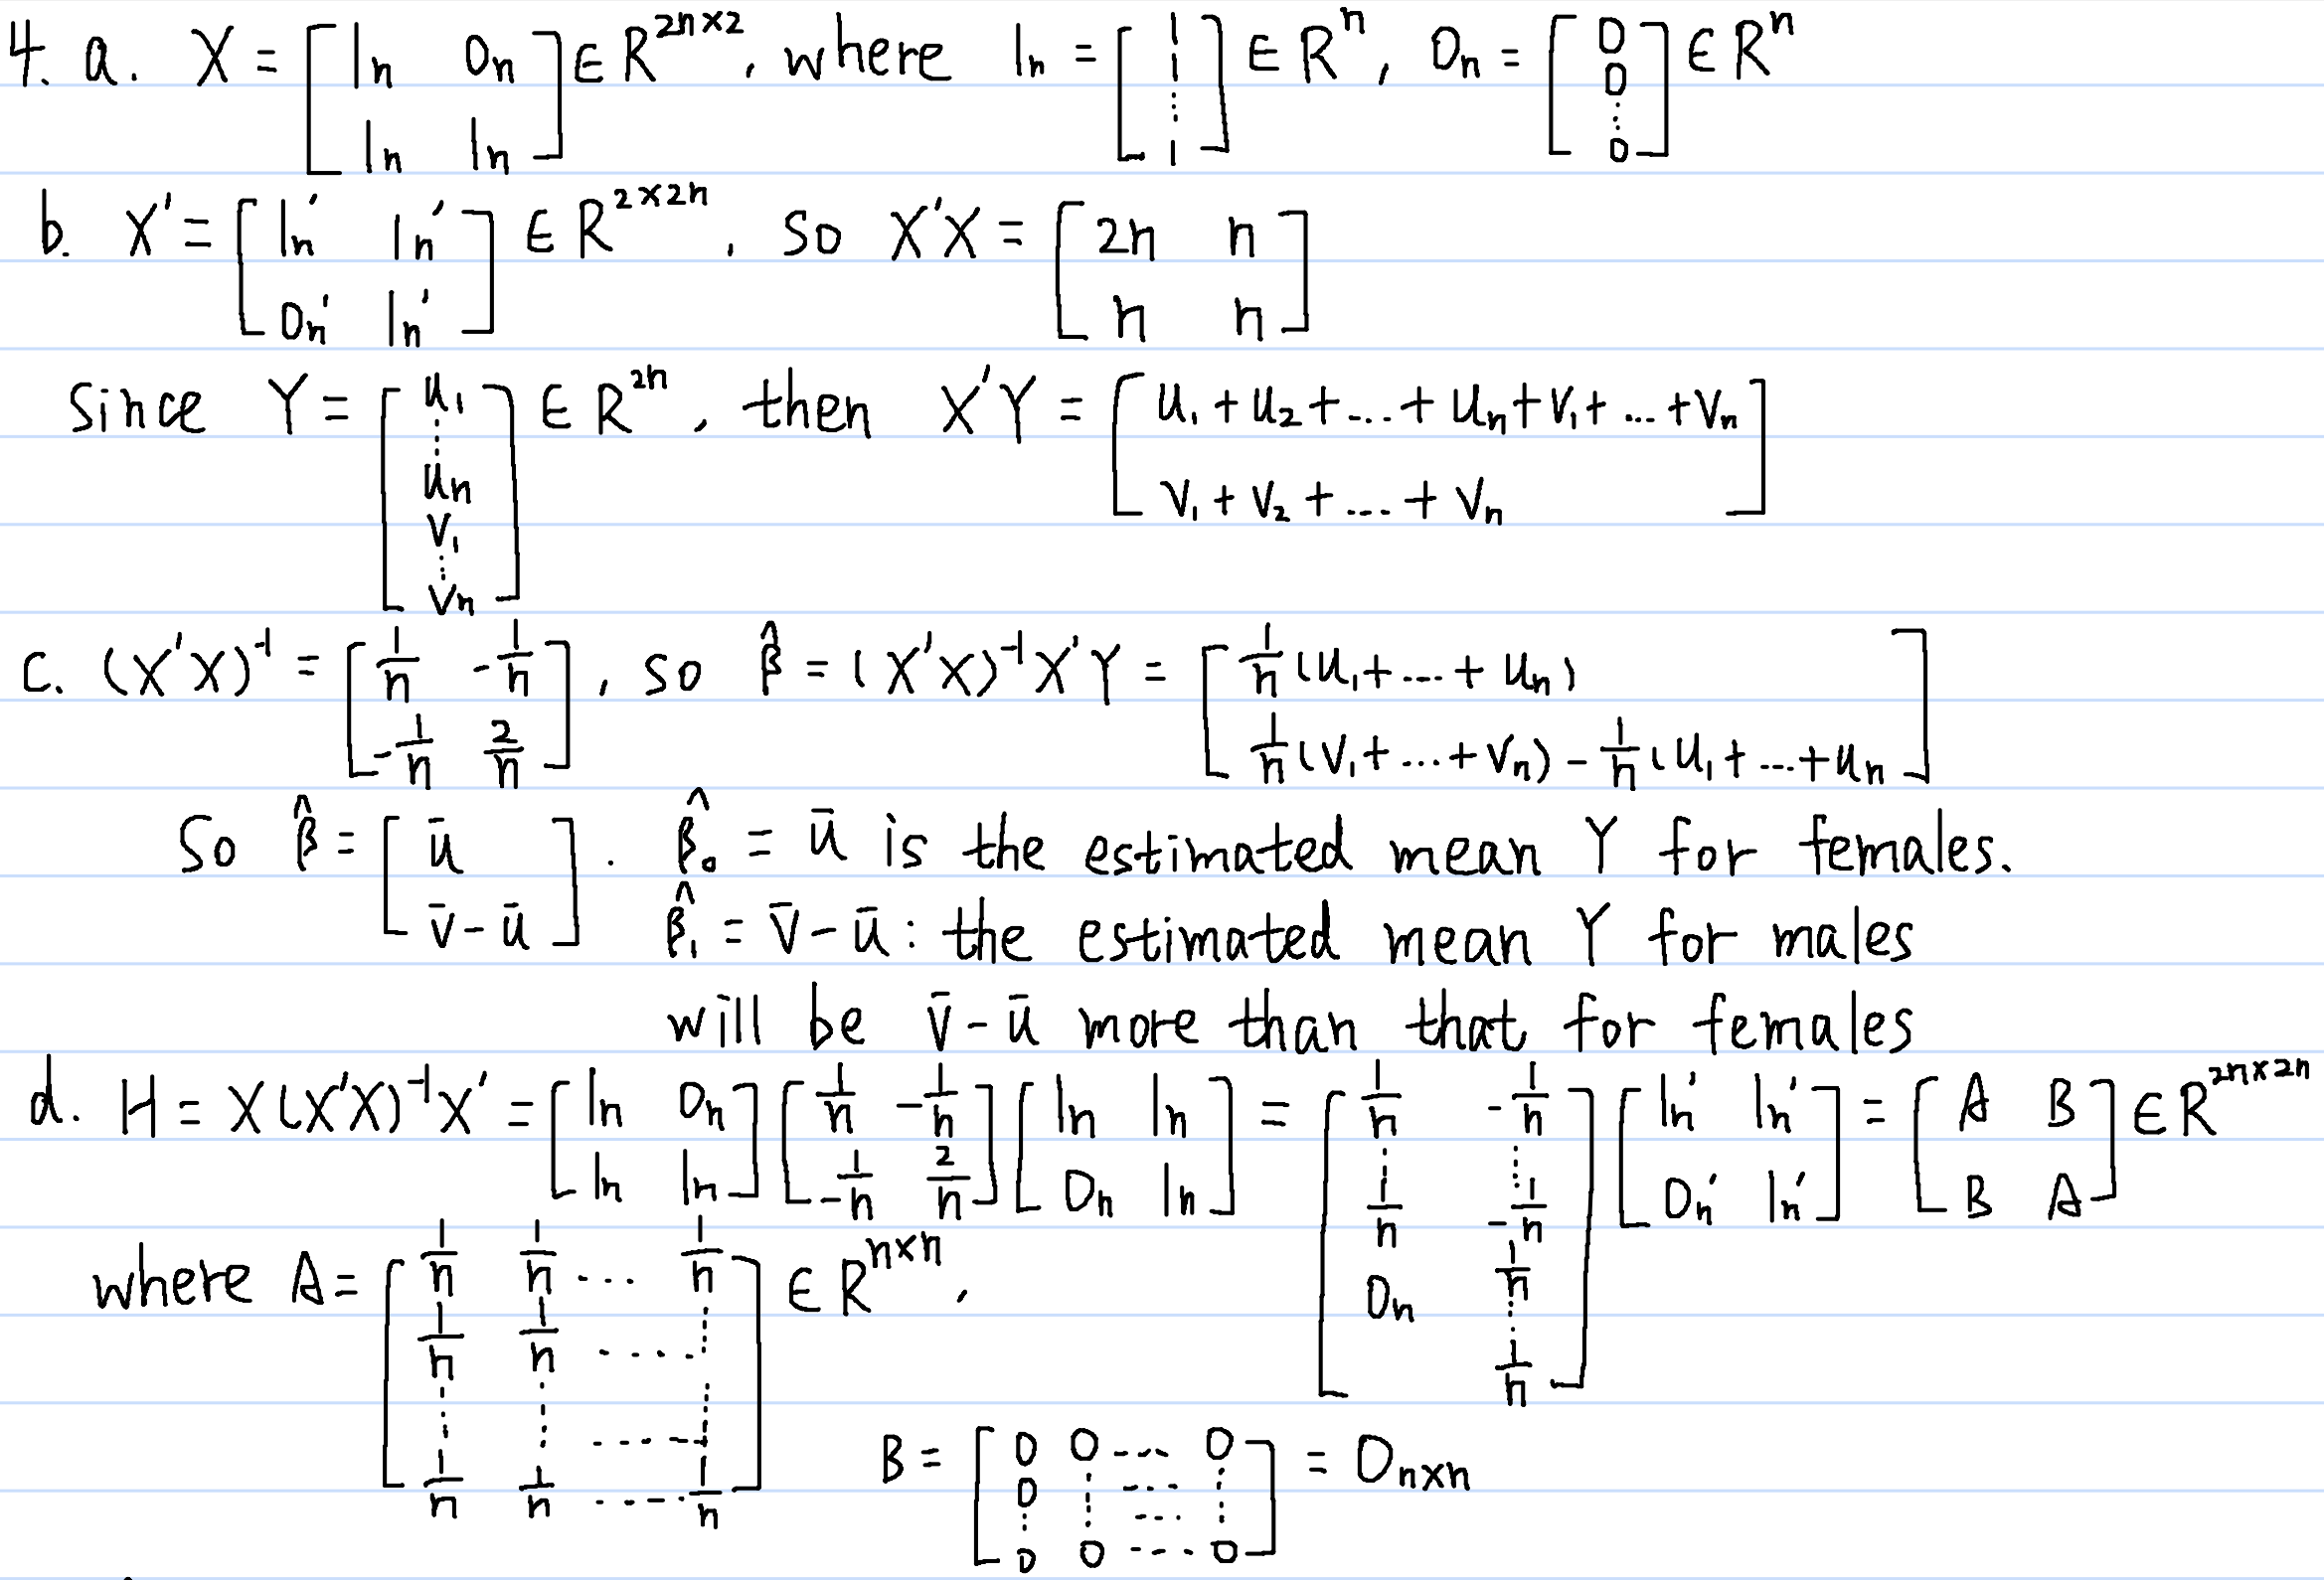 4. a. X = [ 1n 0n ; 1n 1n ] ∈ R^{2n×2}, where 1n = [ 1 ; 1 ; ⋮ ; 1 ] ∈ R^n, 0n = [ 0 ; 0 ; ⋮ ; 0 ] ∈ R^n
b. X' = [ 1n' 1n' ; 0n' 1n' ] ∈ R^{2×2n}, so X'X = [ 2n n ; n n ]
Since Y = [ u₁ ; ⋮ ; un ; v₁ ; ⋮ ; vn ] ∈ R^{2n}, then X'Y = [ u₁ + u₂ + ... + un + v₁ + ... + vn ; v₁ + v₂ + ... + vn ]
c. (X'X)^{-1} = [ 1/n -1/n ; -1/n 2/n ], so β̂ = (X'X)^{-1}X'Y = [ 1/n (u₁ + ... + un) ; 1/n (v₁ + ... + vn) - 1/n (u₁ + ... + un ]
So β̂ = [ ū ; v̄ - ū ]. β̂₀ = ū is the estimated mean Y for females.
β̂₁ = v̄ - ū : the estimated mean Y for males
will be v̄ - ū more than that for females
d. H = X(X'X)^{-1}X' = [ 1n 0n ; 1n 1n ] [ 1/n -1/n ; -1/n 2/n ] [ 1n 1n ; 0n 1n ] = [ 1/n -1/n ; ⋮ ⋮ ; 1/n -1/n ; 0n 1/n ; ⋮ ; 1/n ] [ 1n' 1n' ; 0n' 1n' ] = [ A B ; B A ] ∈ R^{2n×2n}
where A = [ 1/n 1/n ... 1/n ; 1/n 1/n ... ⋮ ; ⋮ ⋮ ... ⋮ ; 1/n 1/n ... 1/n ] ∈ R^{n×n},
B = [ 0 0 ... 0 ; 0 ⋮ ... ⋮ ; ⋮ ... ; 0 0 ... 0 ] = 0n×n